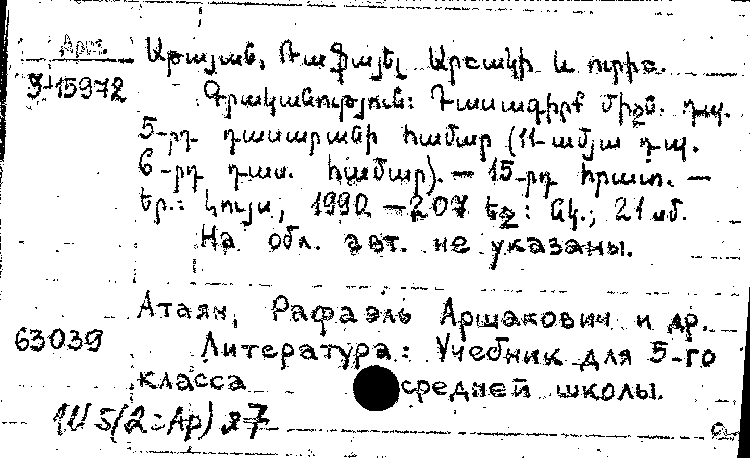 Арм.
Աթայան, Ռաֆայել Արշակի և ուրիշ.
Յ-15972
Գրականություն: Դասագիրք միջն. դպ.
5-րդ դասարանի համար (11-ամյա դպ.
6-րդ դաս. համար). — 15-րդ հրատ. —
Եր.: Լույս, 1990 — 207 էջ: նկ.; 21 սմ.
На обл. авт. не указаны.
Атаян, Рафаэль Аршакович и др.
63039
Литература: Учебник для 5-го
класса средней школы.
1Ш5(2=Ар) я7